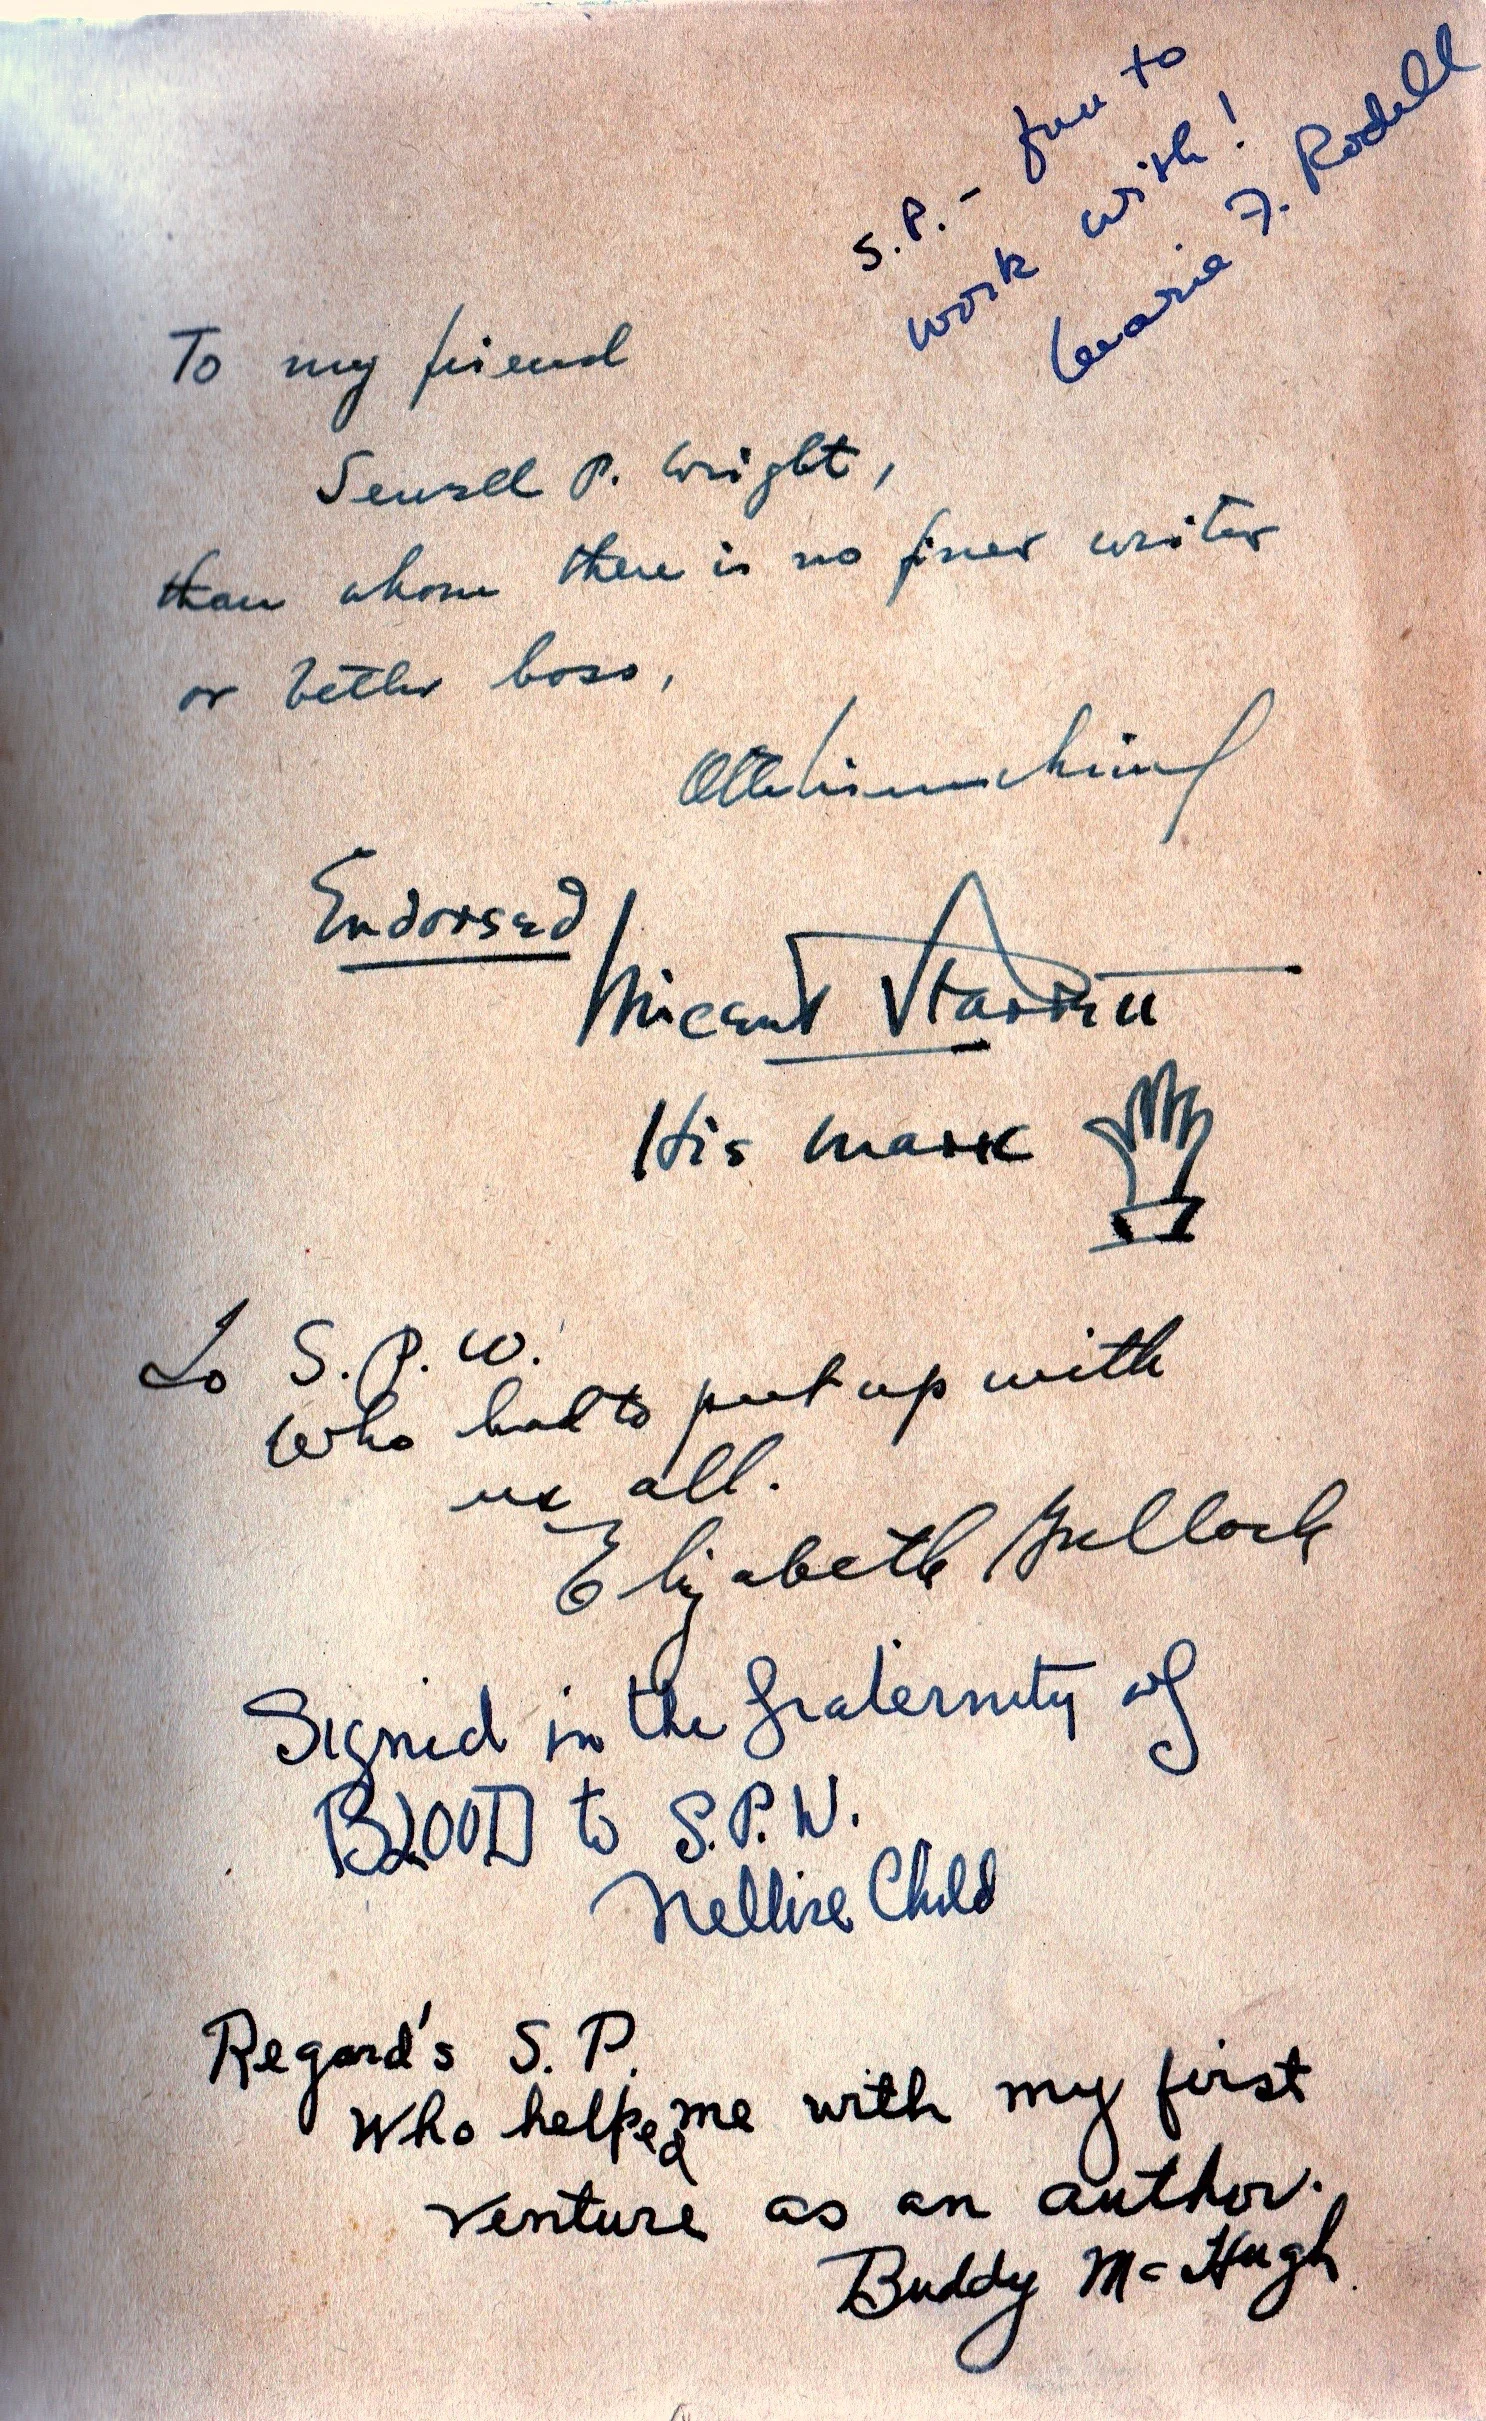 S.P. - fun to
work with!
Marie F. Rodell
To my friend
Sewell P. Wright,
than whom there is no finer writer
or better boss,
Otto Eisenschiml
Endorsed
Vincent Starrett
His mark
To S.P.W.
Who had to put up with
us all.
Elizabeth Bullock
Signed in the fraternity of
BLOOD to S.P.W.
Nellise Child
Regard's S. P.
Who helped me with my first
venture as an author.
Buddy McHugh.